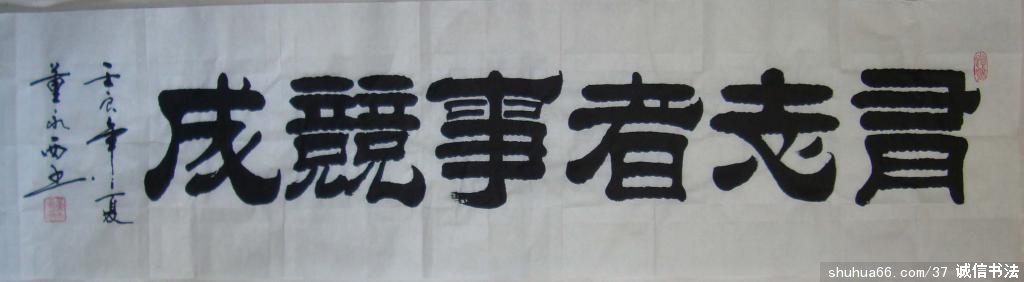 有志者事競成
壬辰年夏
董永西书
shuhua66.com/37 诚信书法